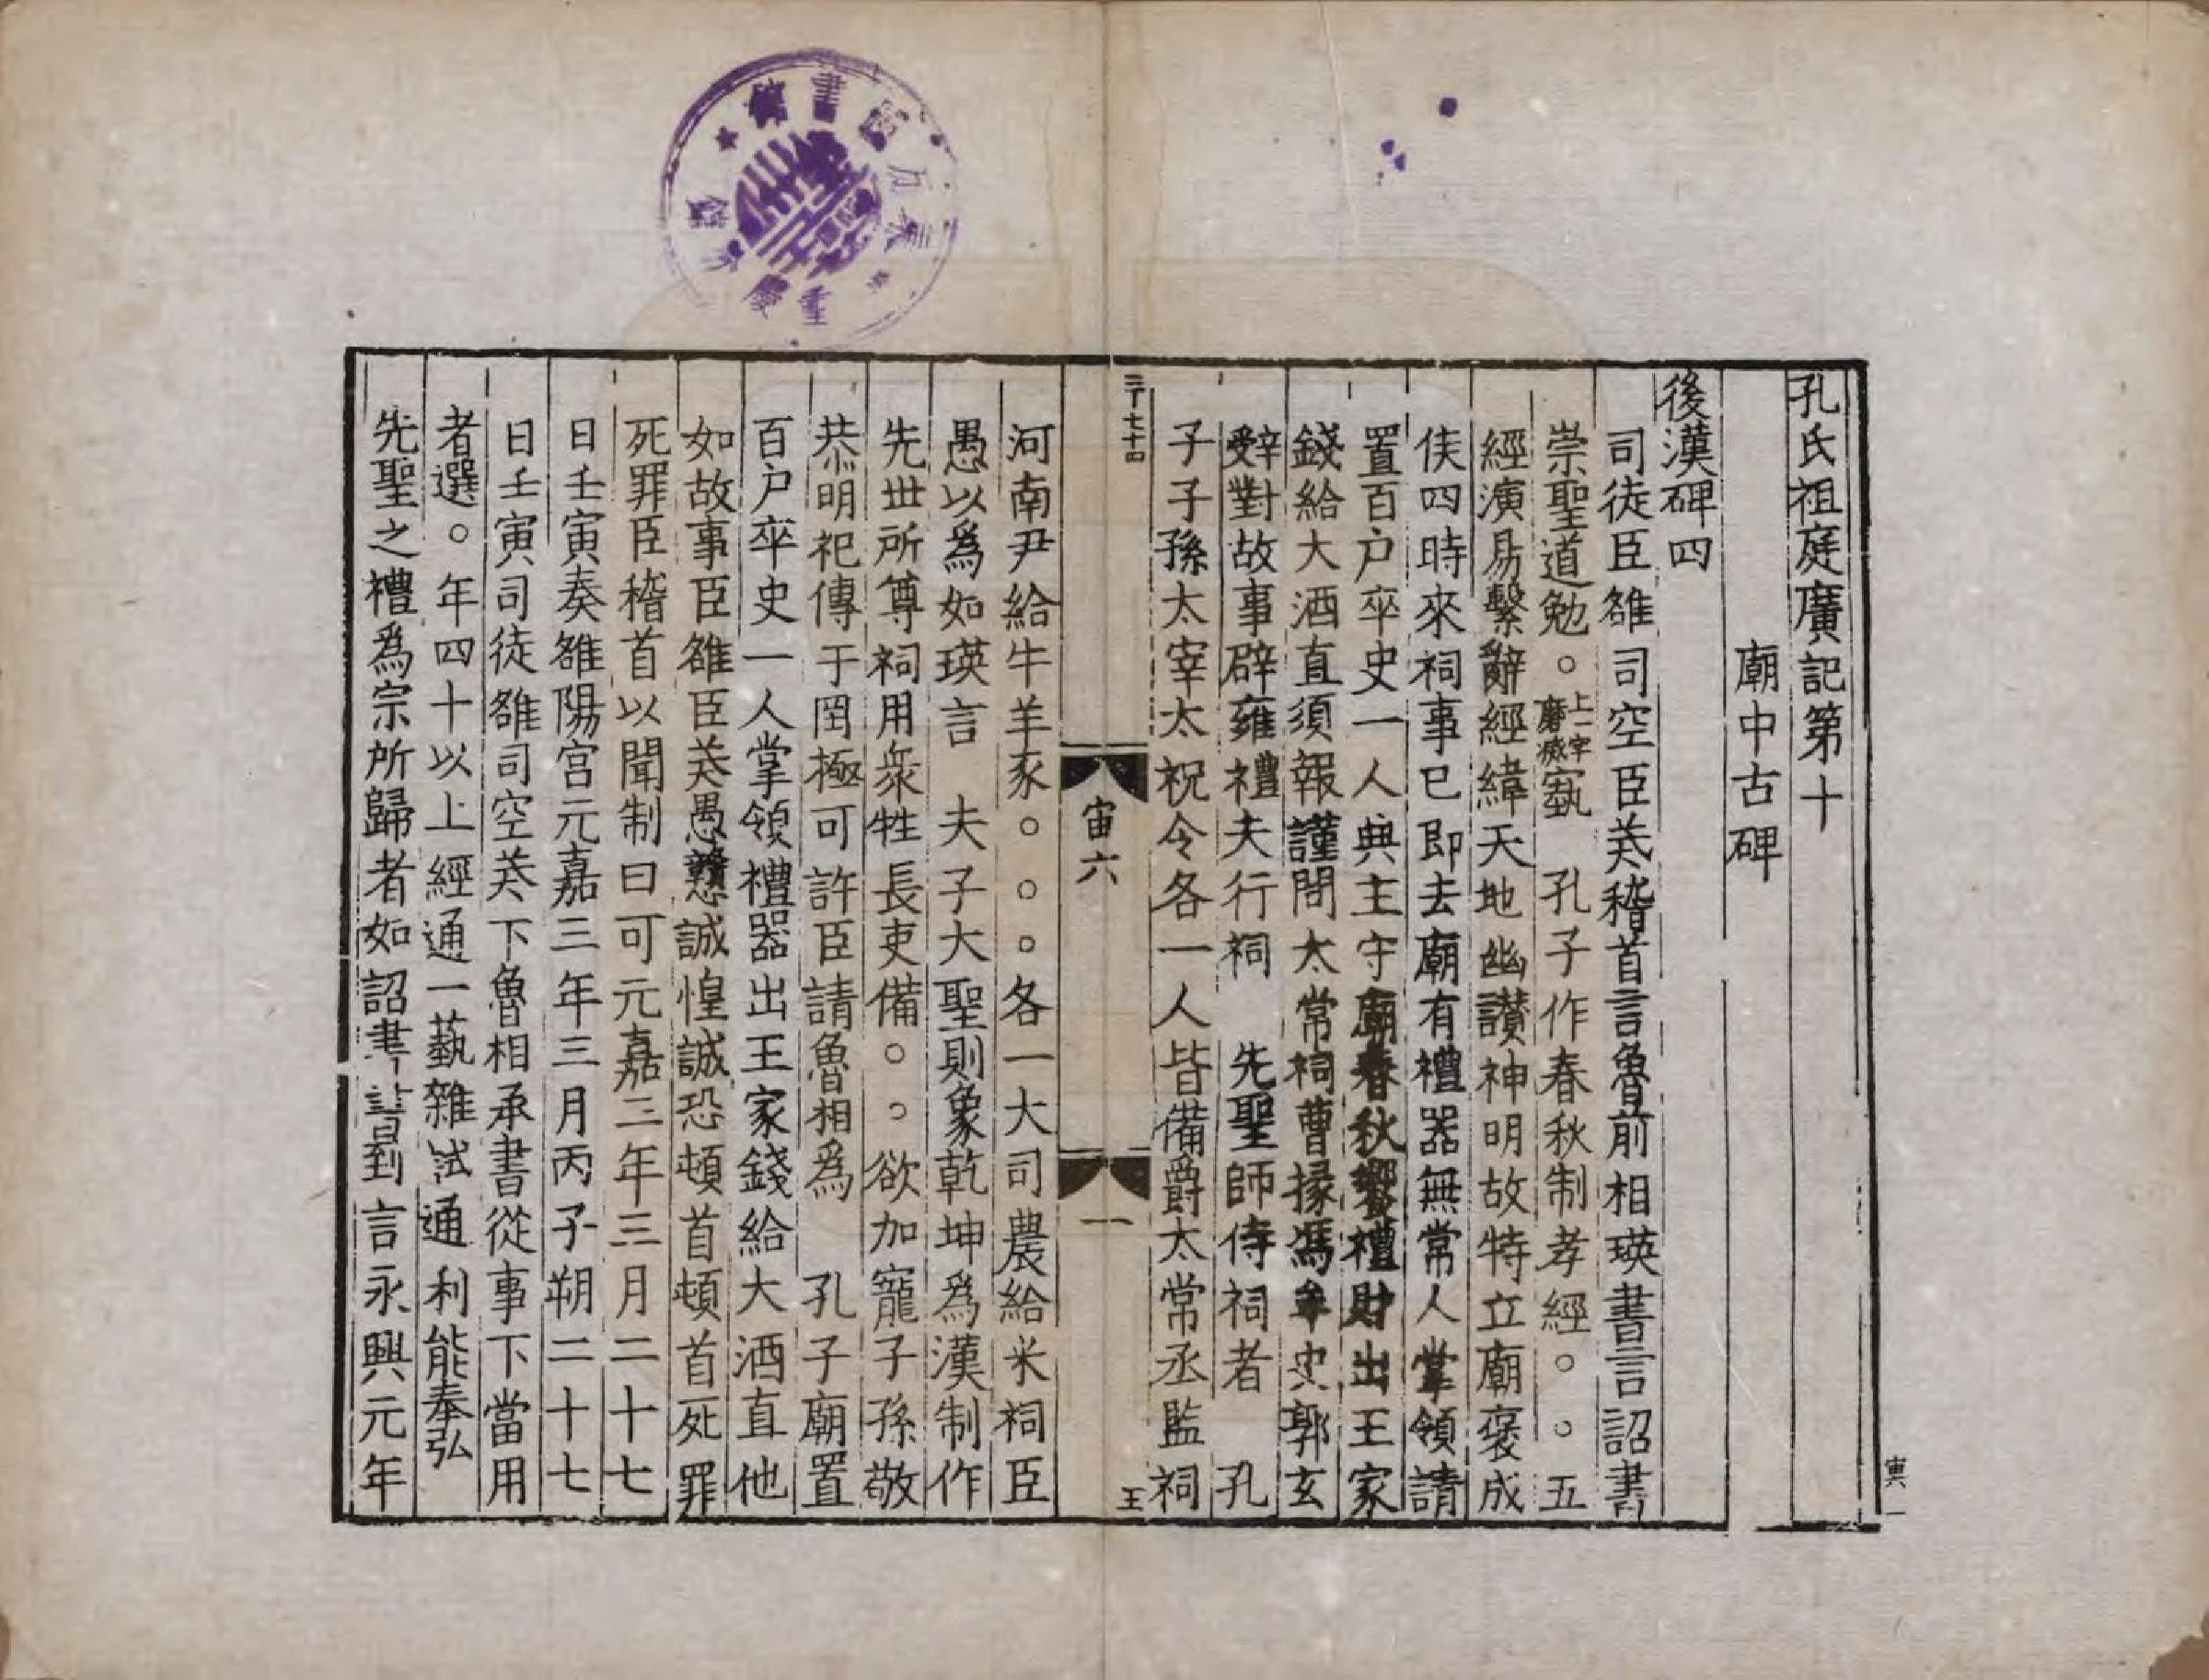 孔氏祖庭廣記第十
廟中古碑
後漢碑四
司徒臣雒司空臣䒾稽首言魯前相瑛書言詔書
崇聖道勉。上一字磨滅藝　孔子作春秋制孝經。。五
經演易繫辭經緯天地幽讃神明故特立廟褒成
侯四時來祠事已即去廟有禮器無常人掌領請
置百户卒史一人典主守廟春秋饗禮財出王家
錢給大酒直須報謹問太常祠曹掾馮牟史郭玄
辤對故事辟雍禮夫行祠　先聖師侍祠者　孔
子子孫太宰太祝令各一人皆備爵太常丞監祠
三千七十四
宙六
一
王
河南尹給牛羊豕。。。各一大司農給米祠臣
愚以爲如瑛言　夫子大聖則象乾坤爲漢制作
先丗所尊祠用衆牲長吏備。。欲加寵子孫敬
恭明祀傳于罔極可許臣請魯相爲　孔子廟置
百户卒史一人掌領禮器出王家錢給大酒直他
如故事臣雒臣䒾愚戇誠惶誠恐頓首頓首死罪
死罪臣稽首以聞制曰可元嘉三年三月二十七
日壬寅奏雒陽宫元嘉三年三月丙子朔二十七
日壬寅司徒雒司空䒾下魯相承書從事下當用
者選。年四十以上經通一藝雜試通利能奉弘
先聖之禮爲宗所歸者如詔書書到言永興元年
寅一